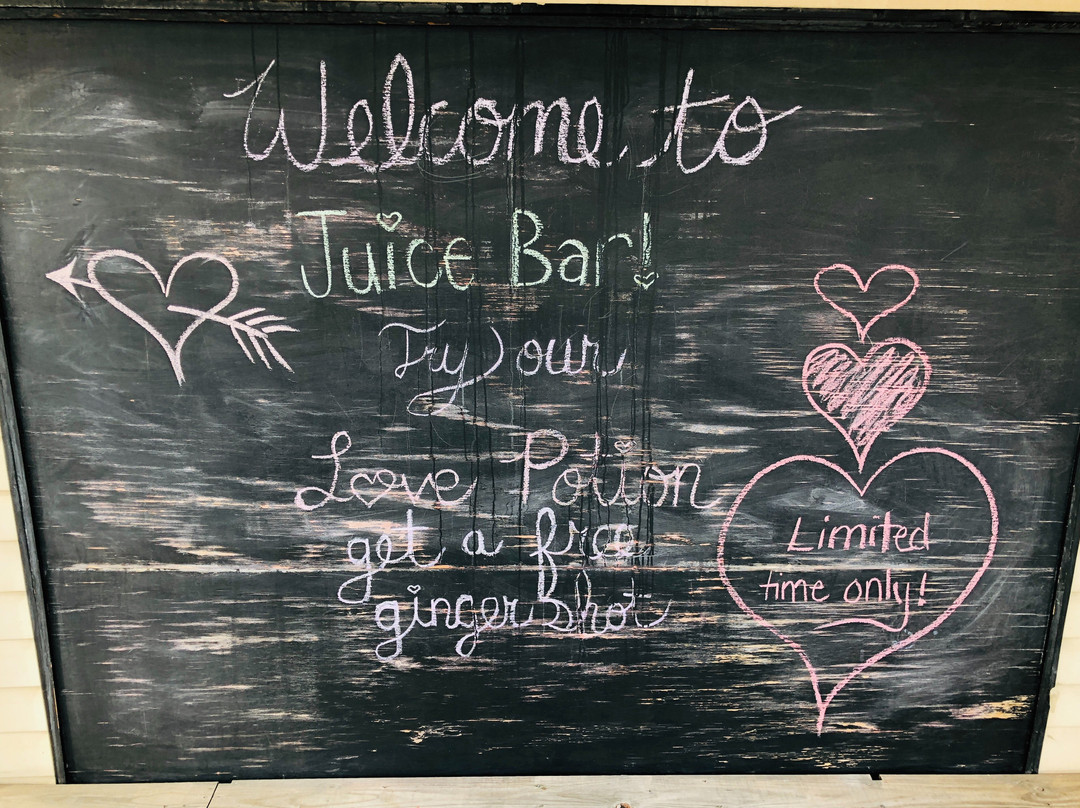 Welcome to
Juice Bar!
Try our
Love Potion
get a free
ginger shot
Limited
time only!